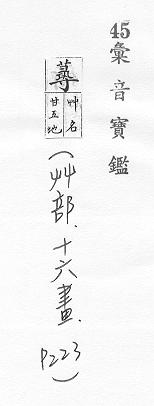 45彙音寶鑑
蕁
艸名
甘五地
(艸部.十六畫.P223)